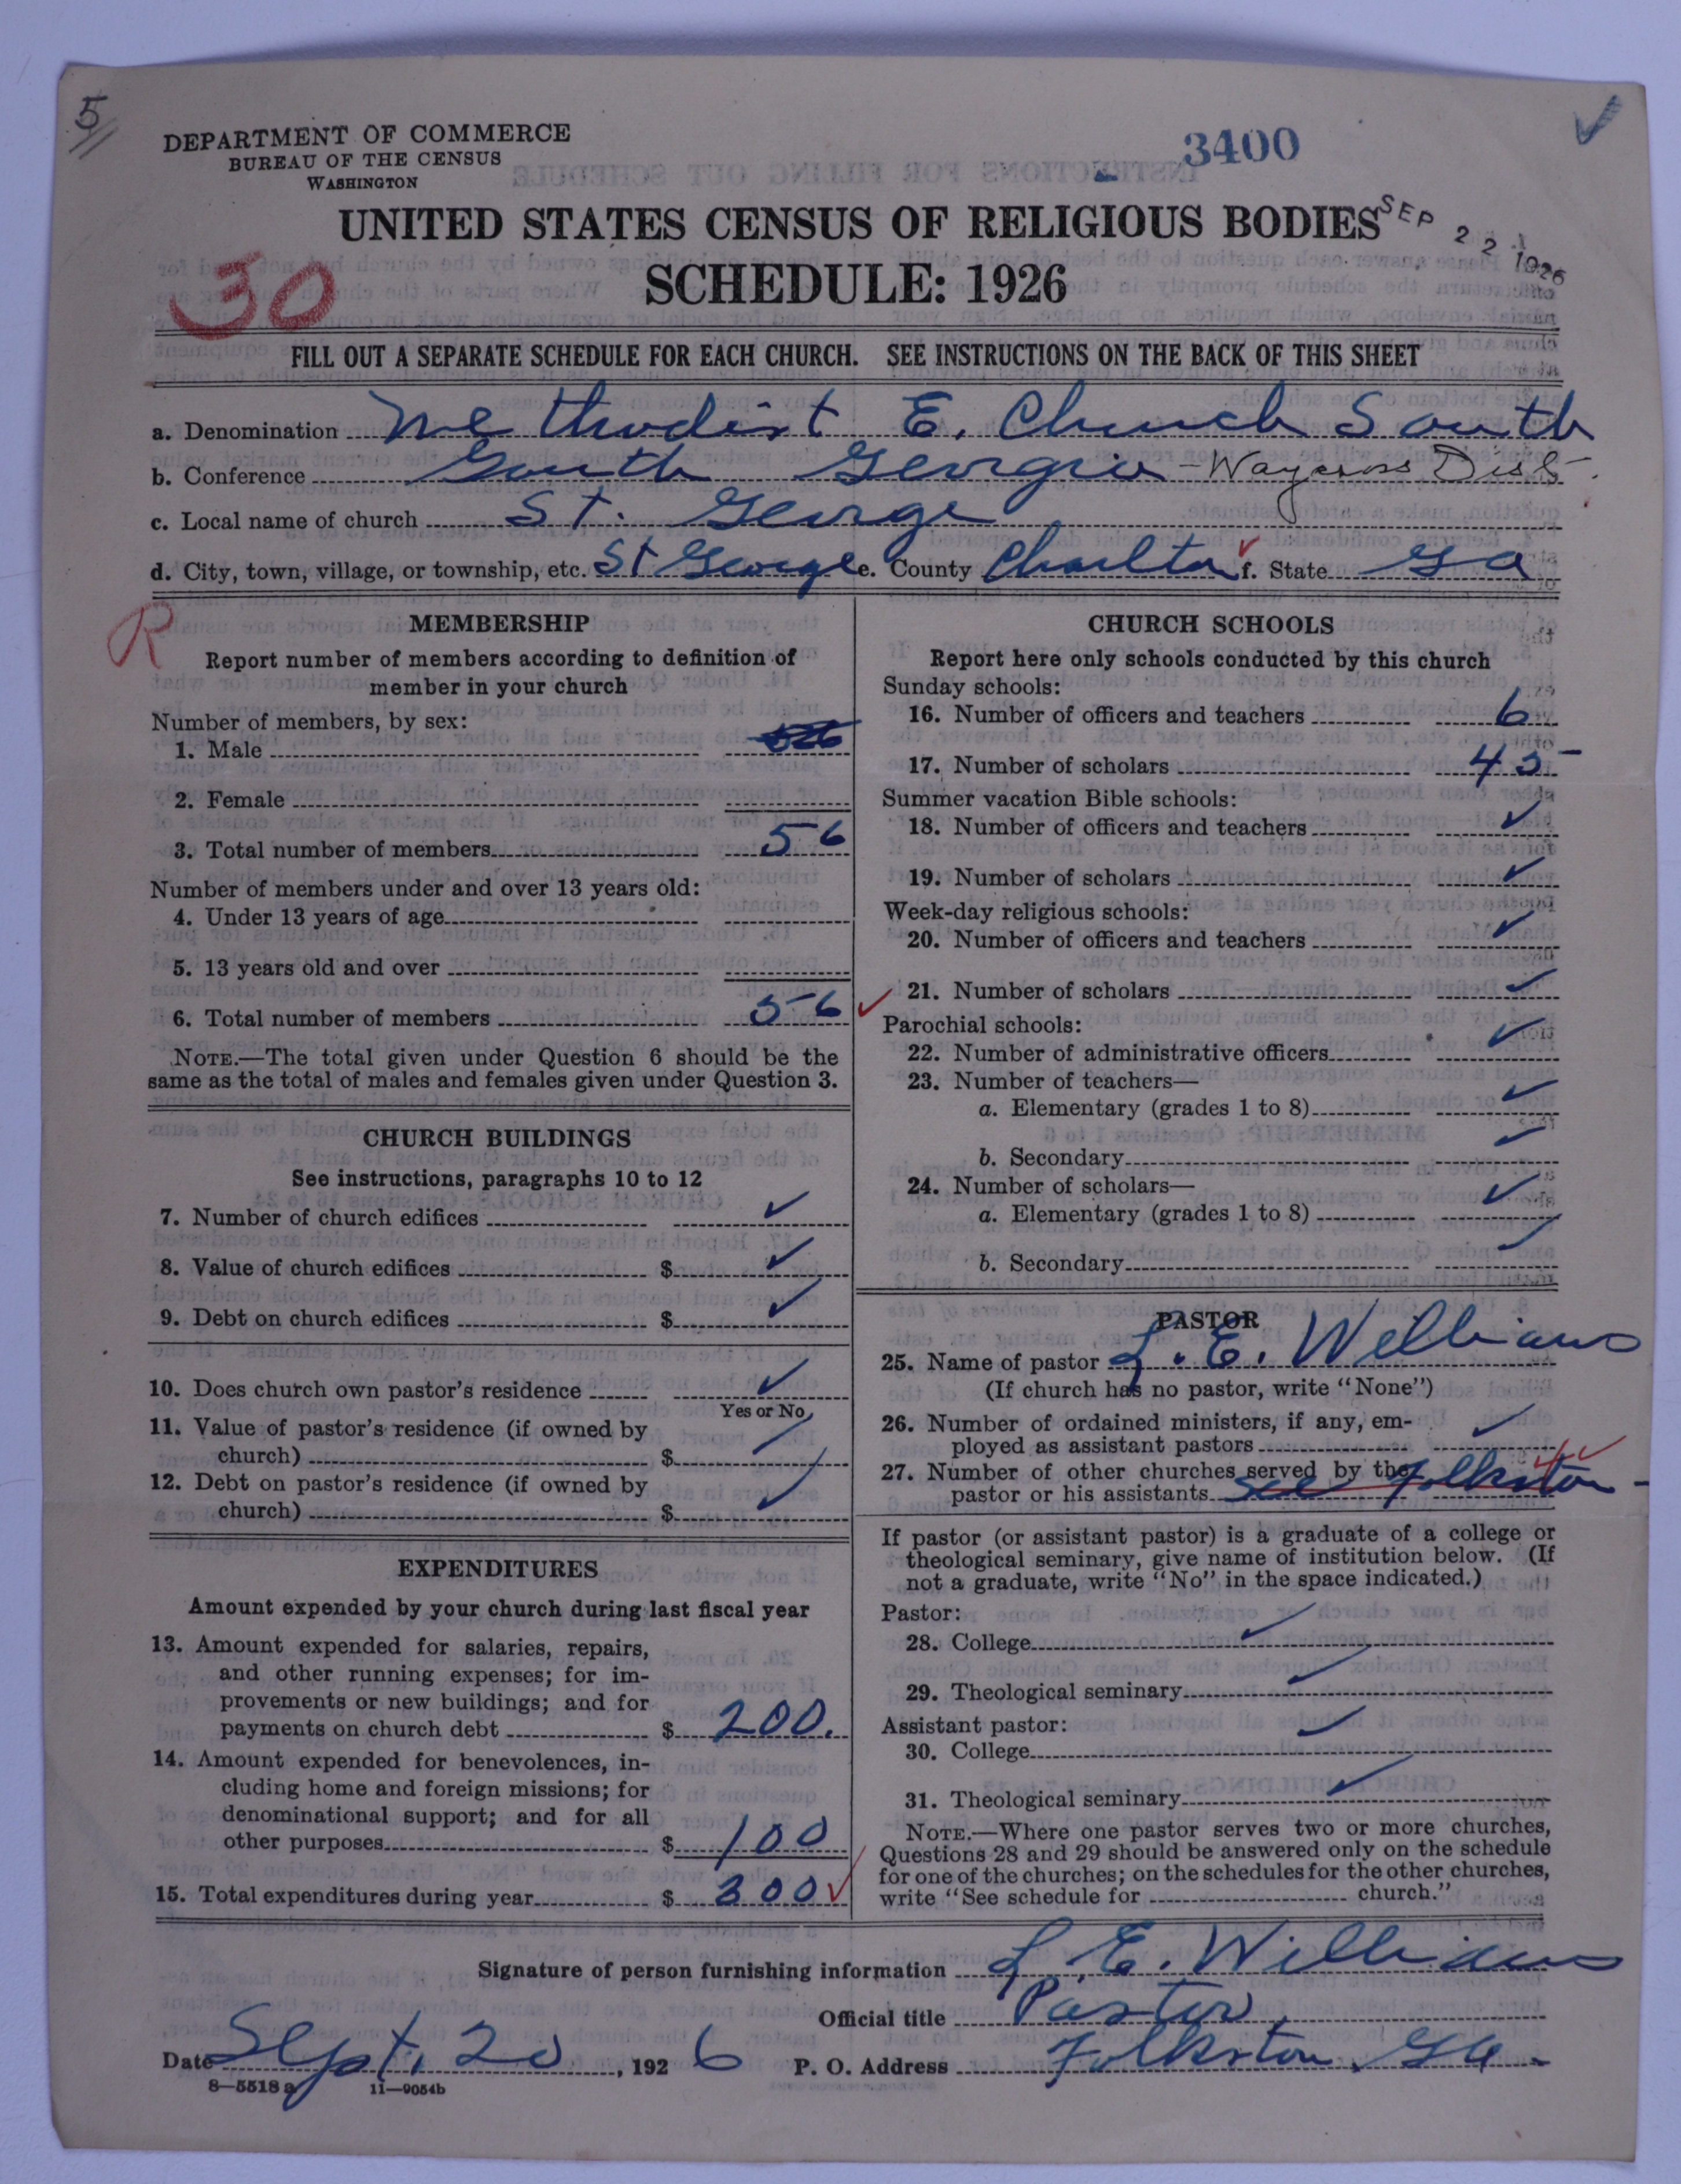 5
DEPARTMENT OF COMMERCE
BUREAU OF THE CENSUS
WASHINGTON
3400
UNITED STATES CENSUS OF RELIGIOUS BODIES
SEP 22 1926
SCHEDULE: 1926
30
FILL OUT A SEPARATE SCHEDULE FOR EACH CHURCH. SEE INSTRUCTIONS ON THE BACK OF THIS SHEET
a. Denomination Methodist E. Church South
b. Conference South Georgia - Waycross Dist.
c. Local name of church St. George
d. City, town, village, or township, etc. St George e. County Charlton f. State Ga
R
MEMBERSHIP
Report number of members according to definition of
member in your church
Number of members, by sex:
1. Male
2. Female
3. Total number of members 56
Number of members under and over 13 years old:
4. Under 13 years of age
5. 13 years old and over
6. Total number of members 56
NOTE.—The total given under Question 6 should be the
same as the total of males and females given under Question 3.
CHURCH BUILDINGS
See instructions, paragraphs 10 to 12
7. Number of church edifices
8. Value of church edifices $
9. Debt on church edifices $
10. Does church own pastor's residence
Yes or No
11. Value of pastor's residence (if owned by
church) $
12. Debt on pastor's residence (if owned by
church) $
EXPENDITURES
Amount expended by your church during last fiscal year
13. Amount expended for salaries, repairs,
and other running expenses; for im-
provements or new buildings; and for
payments on church debt $ 200.
14. Amount expended for benevolences, in-
cluding home and foreign missions; for
denominational support; and for all
other purposes $ 100
15. Total expenditures during year $ 300
CHURCH SCHOOLS
Report here only schools conducted by this church
Sunday schools:
16. Number of officers and teachers 6
17. Number of scholars 45
Summer vacation Bible schools:
18. Number of officers and teachers
19. Number of scholars
Week-day religious schools:
20. Number of officers and teachers
21. Number of scholars
Parochial schools:
22. Number of administrative officers
23. Number of teachers—
a. Elementary (grades 1 to 8)
b. Secondary
24. Number of scholars—
a. Elementary (grades 1 to 8)
b. Secondary
PASTOR
25. Name of pastor L. E. Williams
(If church has no pastor, write "None")
26. Number of ordained ministers, if any, em-
ployed as assistant pastors
27. Number of other churches served by the
pastor or his assistants see Folkston 4
If pastor (or assistant pastor) is a graduate of a college or
theological seminary, give name of institution below. (If
not a graduate, write "No" in the space indicated.)
Pastor:
28. College
29. Theological seminary
Assistant pastor:
30. College
31. Theological seminary
NOTE.—Where one pastor serves two or more churches,
Questions 28 and 29 should be answered only on the schedule
for one of the churches; on the schedules for the other churches,
write "See schedule for church."
Signature of person furnishing information L. E. Williams
Official title Pastor
Date Sept. 20, 1926 P. O. Address Folkston, Ga.
8—5518 a 11—9054b